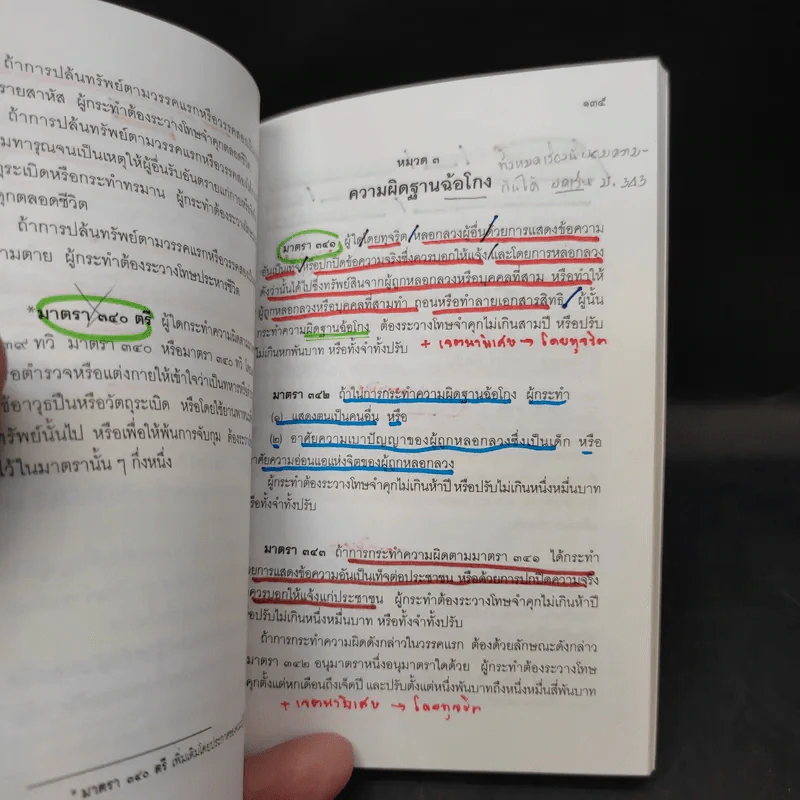 ถ้าการปล้นทรัพย์ตามวรรคแรกหรือวรรคสอง
รายสาหัส ผู้กระทำต้องระวางโทษจำคุกตลอดชีวิต
ถ้าการปล้นทรัพย์ตามวรรคแรกหรือวรรคสอง
มทารุณจนเป็นเหตุให้ผู้อื่นรับอันตรายแก่กายหรือจิตใจ
ุระเบิดหรือกระทำทรมาน ผู้กระทำต้องระวางโทษ
ุกตลอดชีวิต
ถ้าการปล้นทรัพย์ตามวรรคแรกหรือวรรคสอง
ามตาย ผู้กระทำต้องระวางโทษประหารชีวิต
*มาตรา ๓๔๐ ตรี ผู้ใดกระทำความผิดตาม
๓๙ ทวิ มาตรา ๓๔๐ หรือมาตรา ๓๔๐ ทวิ
อตำรวจหรือแต่งกายให้เข้าใจว่าเป็นทหารหรือ
ช้อาวุธปืนหรือวัตถุระเบิด หรือโดยใช้ยานพาหนะ
ทรัพย์นั้นไป หรือเพื่อให้พ้นการจับกุม ต้อง
ไว้ในมาตรานั้น ๆ กึ่งหนึ่ง
* มาตรา ๓๔๐ ตรี เพิ่มเติมโดยประกาศของ
๑๓๕
หมวด ๓
ความผิดฐานฉ้อโกง
ม. 343
มาตรา ๓๔๑ ผู้ใดโดยทุจริต หลอกลวงผู้อื่นด้วยการแสดงข้อความ
อันเป็นเท็จ หรือปกปิดข้อความจริงซึ่งควรบอกให้แจ้ง และโดยการหลอกลวง
ดังว่านั้นได้ไปซึ่งทรัพย์สินจากผู้ถูกหลอกลวงหรือบุคคลที่สาม หรือทำให้
ผู้ถูกหลอกลวงหรือบุคคลที่สามทำ ถอนหรือทำลายเอกสารสิทธิ ผู้นั้น
กระทำความผิดฐานฉ้อโกง ต้องระวางโทษจำคุกไม่เกินสามปี หรือปรับ
ไม่เกินหกพันบาท หรือทั้งจำทั้งปรับ + เจตนาพิเศษ → โดยทุจริต
มาตรา ๓๔๒ ถ้าในการกระทำความผิดฐานฉ้อโกง ผู้กระทำ
(๑) แสดงตนเป็นคนอื่น หรือ
(๒) อาศัยความเบาปัญญาของผู้ถูกหลอกลวงซึ่งเป็นเด็ก หรือ
าศัยความอ่อนแอแห่งจิตของผู้ถูกหลอกลวง
ผู้กระทำต้องระวางโทษจำคุกไม่เกินห้าปี หรือปรับไม่เกินหนึ่งหมื่นบาท
รือทั้งจำทั้งปรับ
มาตรา ๓๔๓ ถ้าการกระทำความผิดตามมาตรา ๓๔๑ ได้กระทำ
วยการแสดงข้อความอันเป็นเท็จต่อประชาชน หรือด้วยการปกปิดความจริง
ควรบอกให้แจ้งแก่ประชาชน ผู้กระทำต้องระวางโทษจำคุกไม่เกินห้าปี
รือปรับไม่เกินหนึ่งหมื่นบาท หรือทั้งจำทั้งปรับ
ถ้าการกระทำความผิดดังกล่าวในวรรคแรก ต้องด้วยลักษณะดังกล่าว
มาตรา ๓๔๒ อนุมาตราหนึ่งอนุมาตราใดด้วย ผู้กระทำต้องระวางโทษ
ุกตั้งแต่หกเดือนถึงเจ็ดปี และปรับตั้งแต่หนึ่งพันบาทถึงหนึ่งหมื่นสี่พันบาท
+ เจตนาพิเศษ → โดยทุจริต